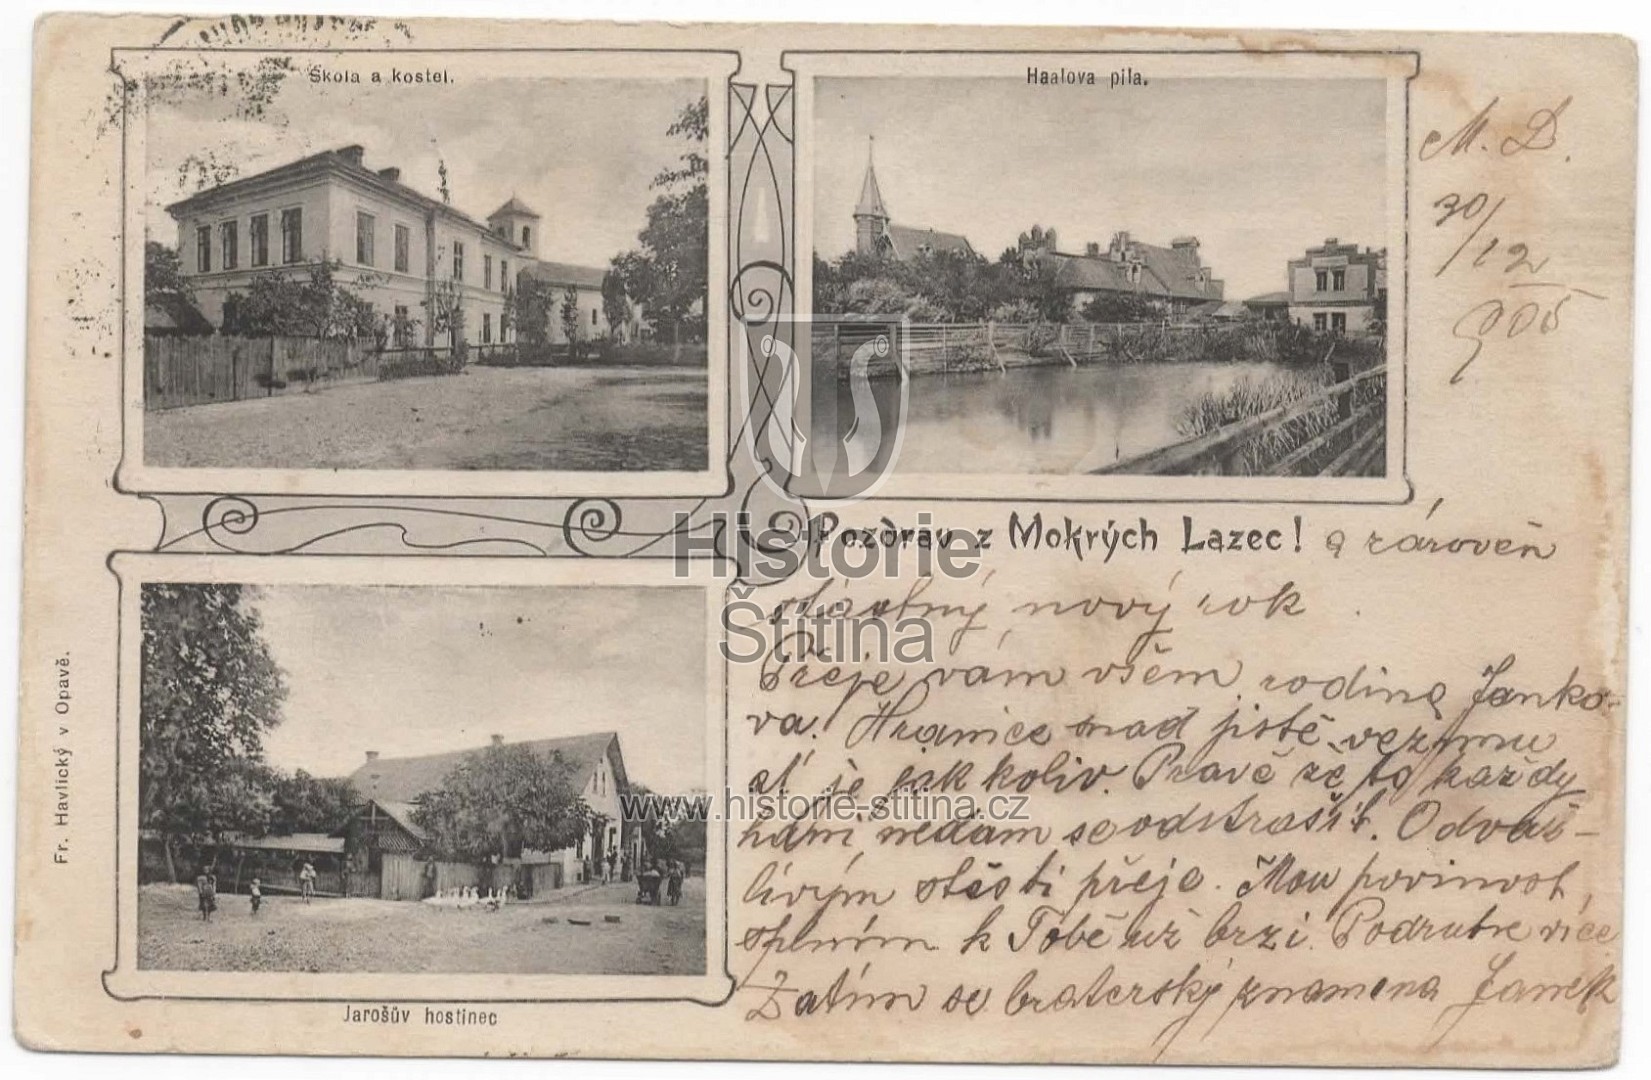 Škola a kostel.
Haalova pila.
M. D.
30/12
905
Pozdrav z Mokrých Lazec! a zároveň
šťastný nový rok
Přeje vám všem rodina Janko-
va. Hranice snad jistě vezmu
ať je jak koliv. Pravě že to každy
haní nedam se odstrašit. Odváž-
livým stěsti přeje. Mou povinost
splním k Tobě už brzi. Podruhe více
Zatím se bratersky znamena Janek
Historie
Štítina
www.historie-stitina.cz
Fr. Havlický v Opavě.
Jarošův hostinec